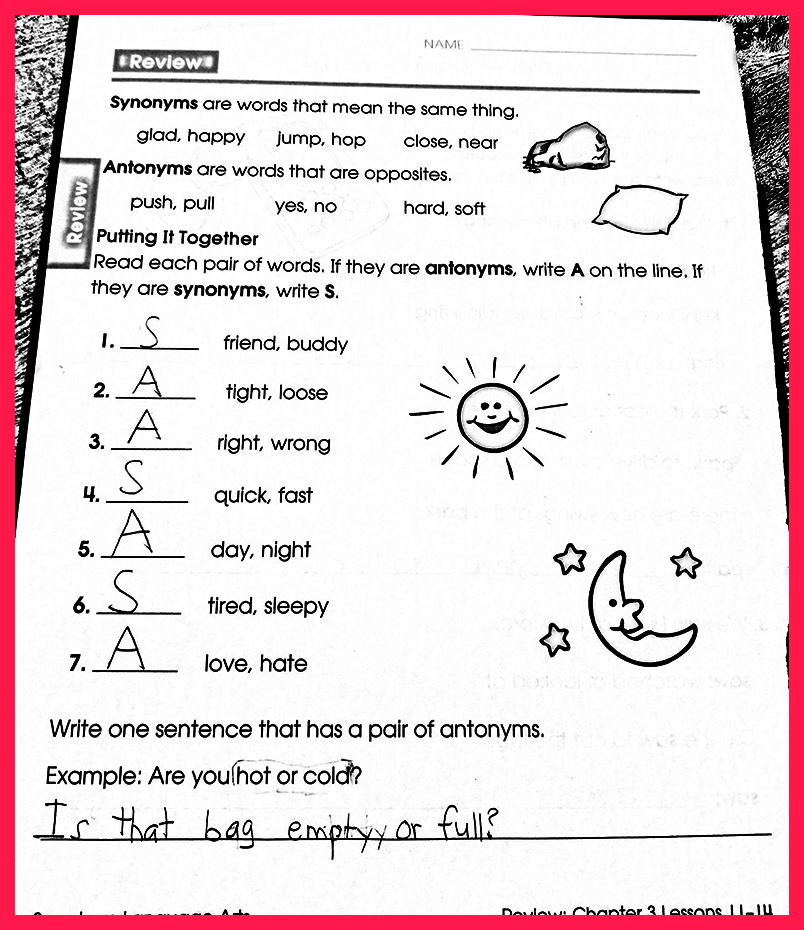 NAME
Review
Synonyms are words that mean the same thing.
glad, happy jump, hop close, near
Antonyms are words that are opposites.
push, pull yes, no hard, soft
Review
Putting It Together
Read each pair of words. If they are antonyms, write A on the line. If
they are synonyms, write S.
1. S friend, buddy
2. A tight, loose
3. A right, wrong
4. S quick, fast
5. A day, night
6. S tired, sleepy
7. A love, hate
Write one sentence that has a pair of antonyms.
Example: Are you hot or cold?
Is that bag emptyy or full?
Language Arts
Review: Chapter 3 Lessons 11-14